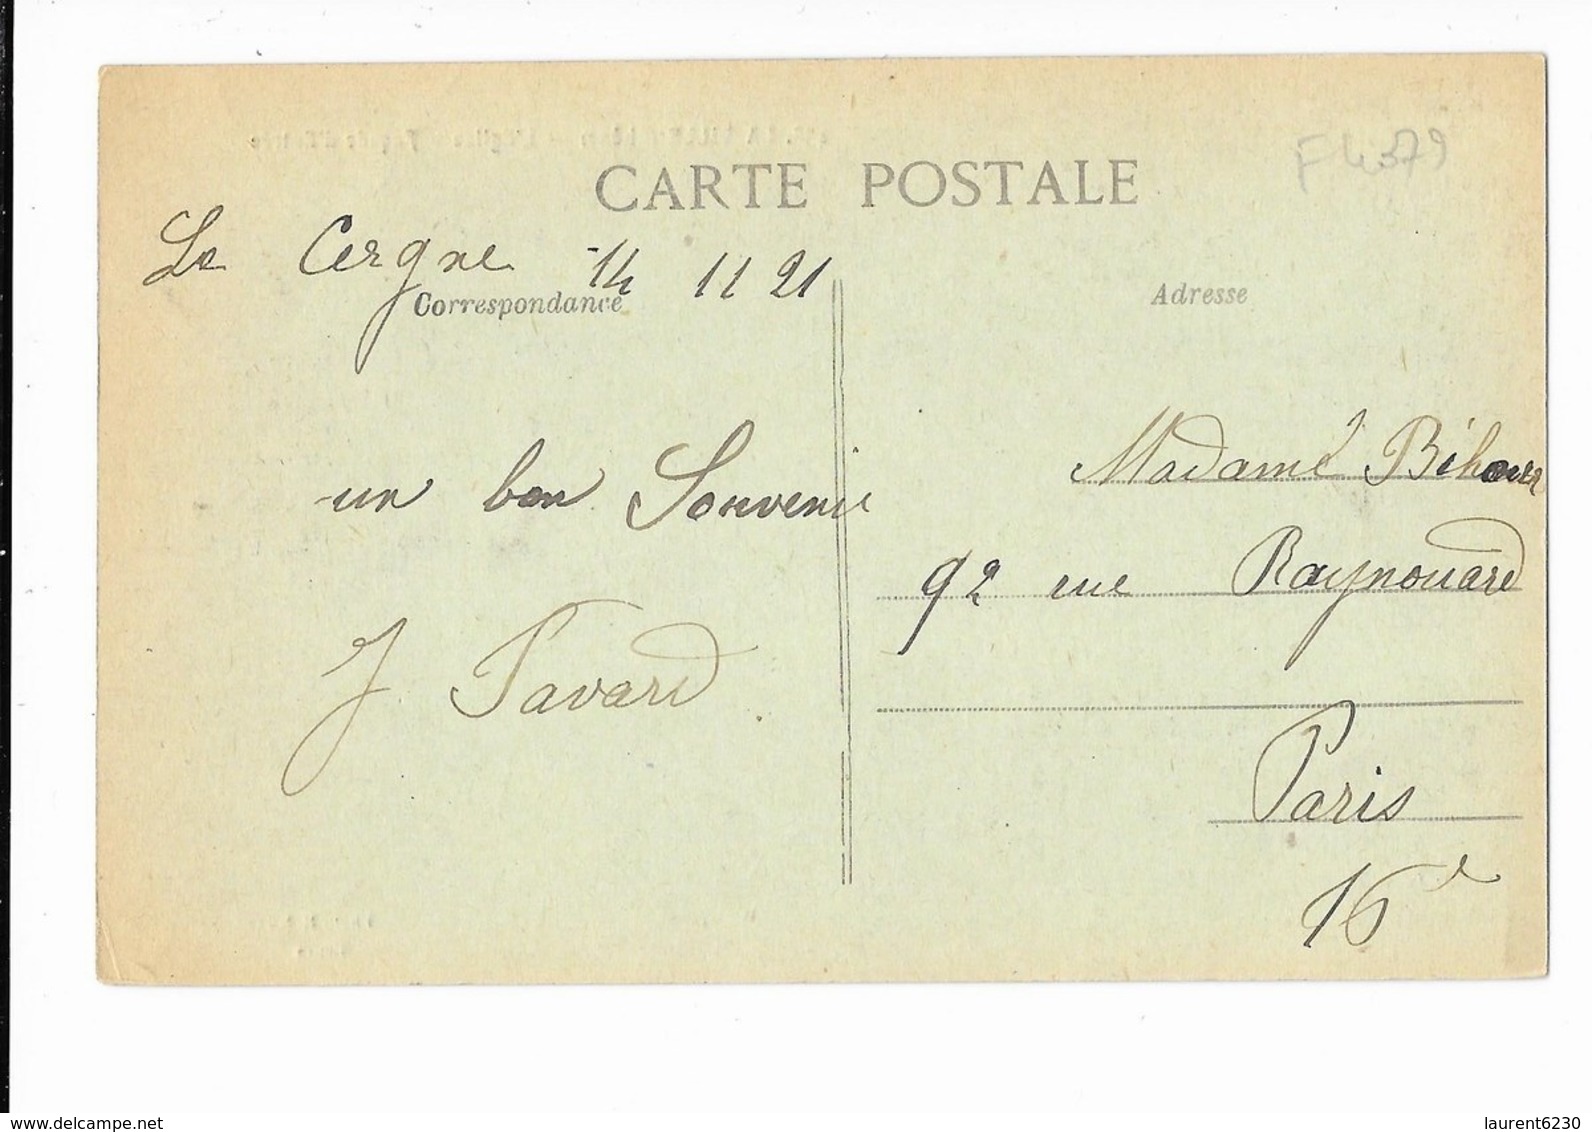 F4379
CARTE POSTALE
Le Cergne 14 11 21
Correspondance
Adresse
un bon Souvenir
J Pavard
Madame
92 rue Raynouard
Paris
16e
www.delcampe.net
laurent6230